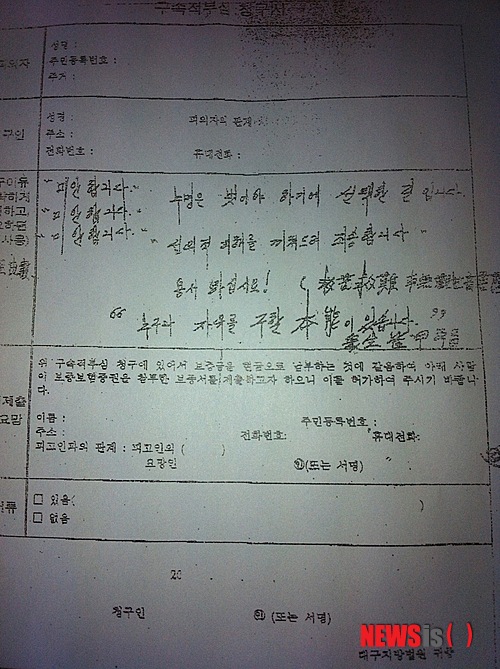 구속적부심 청구서
성명 :
주민등록번호 :
주거 :
성명 : 피의자와 관계
주소 :
전화번호 : 휴대전화 :
"미안합니다." 누명은 벗어야 하기에 선택한 길입니다.
"미안합니다."
"미안합니다." "선의적 피해를 끼쳐드려 죄송합니다"
용서 하십시요! (救苦救難
"누구나 자유를 구할 本能이 있습니다."
본 구속적부심 청구에 있어서 보증금을 현금으로 납부하는 것에 갈음하여 아래 사람
의 보증보험증권을 첨부한 보증서를 제출하고자 하오니 이를 허가하여 주시기 바랍니
다.
이름 : 주민등록번호 :
주소 : 전화번호: 휴대전화:
피고인과의 관계 : 피고인의 ( )
요망인 ㊞(또는 서명)
□ 있음( )
□ 없음
20
청구인 ㊞ (또는 서명)
NEWSis( )
대구지방법원 귀중